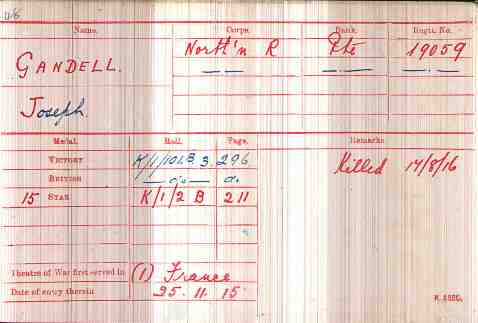 Name. Corps. Rank. Regtl. No.
GANDELL. North'n R Pte 19059
Joseph.
Medal. Roll. Page. Remarks
VICTORY K/1/101B3. 296 Killed 14/8/16
BRITISH do do.
15 STAR K/1/2 B 211
Theatre of War first served in (1) France
Date of entry therein 25. 11. 15
K. 1380.